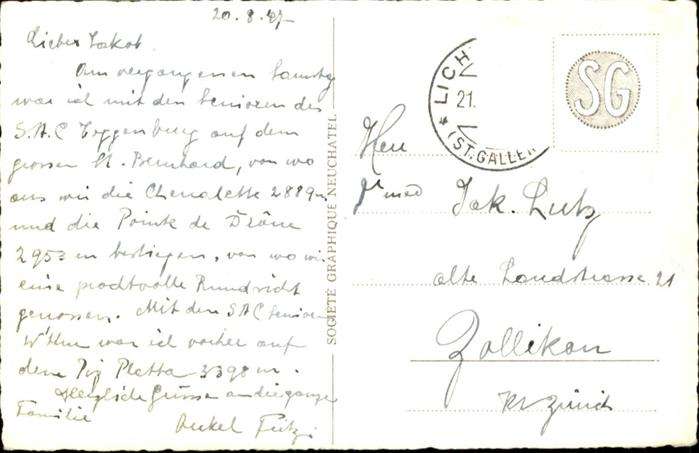 20.8.47
Lieber Jakob.
Am vergangenen Samstag
war ich mit den Senioren des
S.A.C Toggenburg auf dem
grossen St. Bernhard, von wo
aus wir die Chenalette 2889m
und die Pointe de Drône
2953 m bestiegen, von wo wir
eine prachtvolle Rundsicht
genossen. Mit den SAC Senioren
W'thur war ich vorher auf
dem Piz Platta 3398 m.
Herzliche Grüsse an die ganze
Familie
Onkel Fritz
SOCIÉTÉ GRAPHIQUE NEUCHATEL
LICH
21.
(ST. GALLEN
SG
Herrn
Dr med
Jak. Lutz
alte Landstrasse 21
Zollikon
Kt Zürich